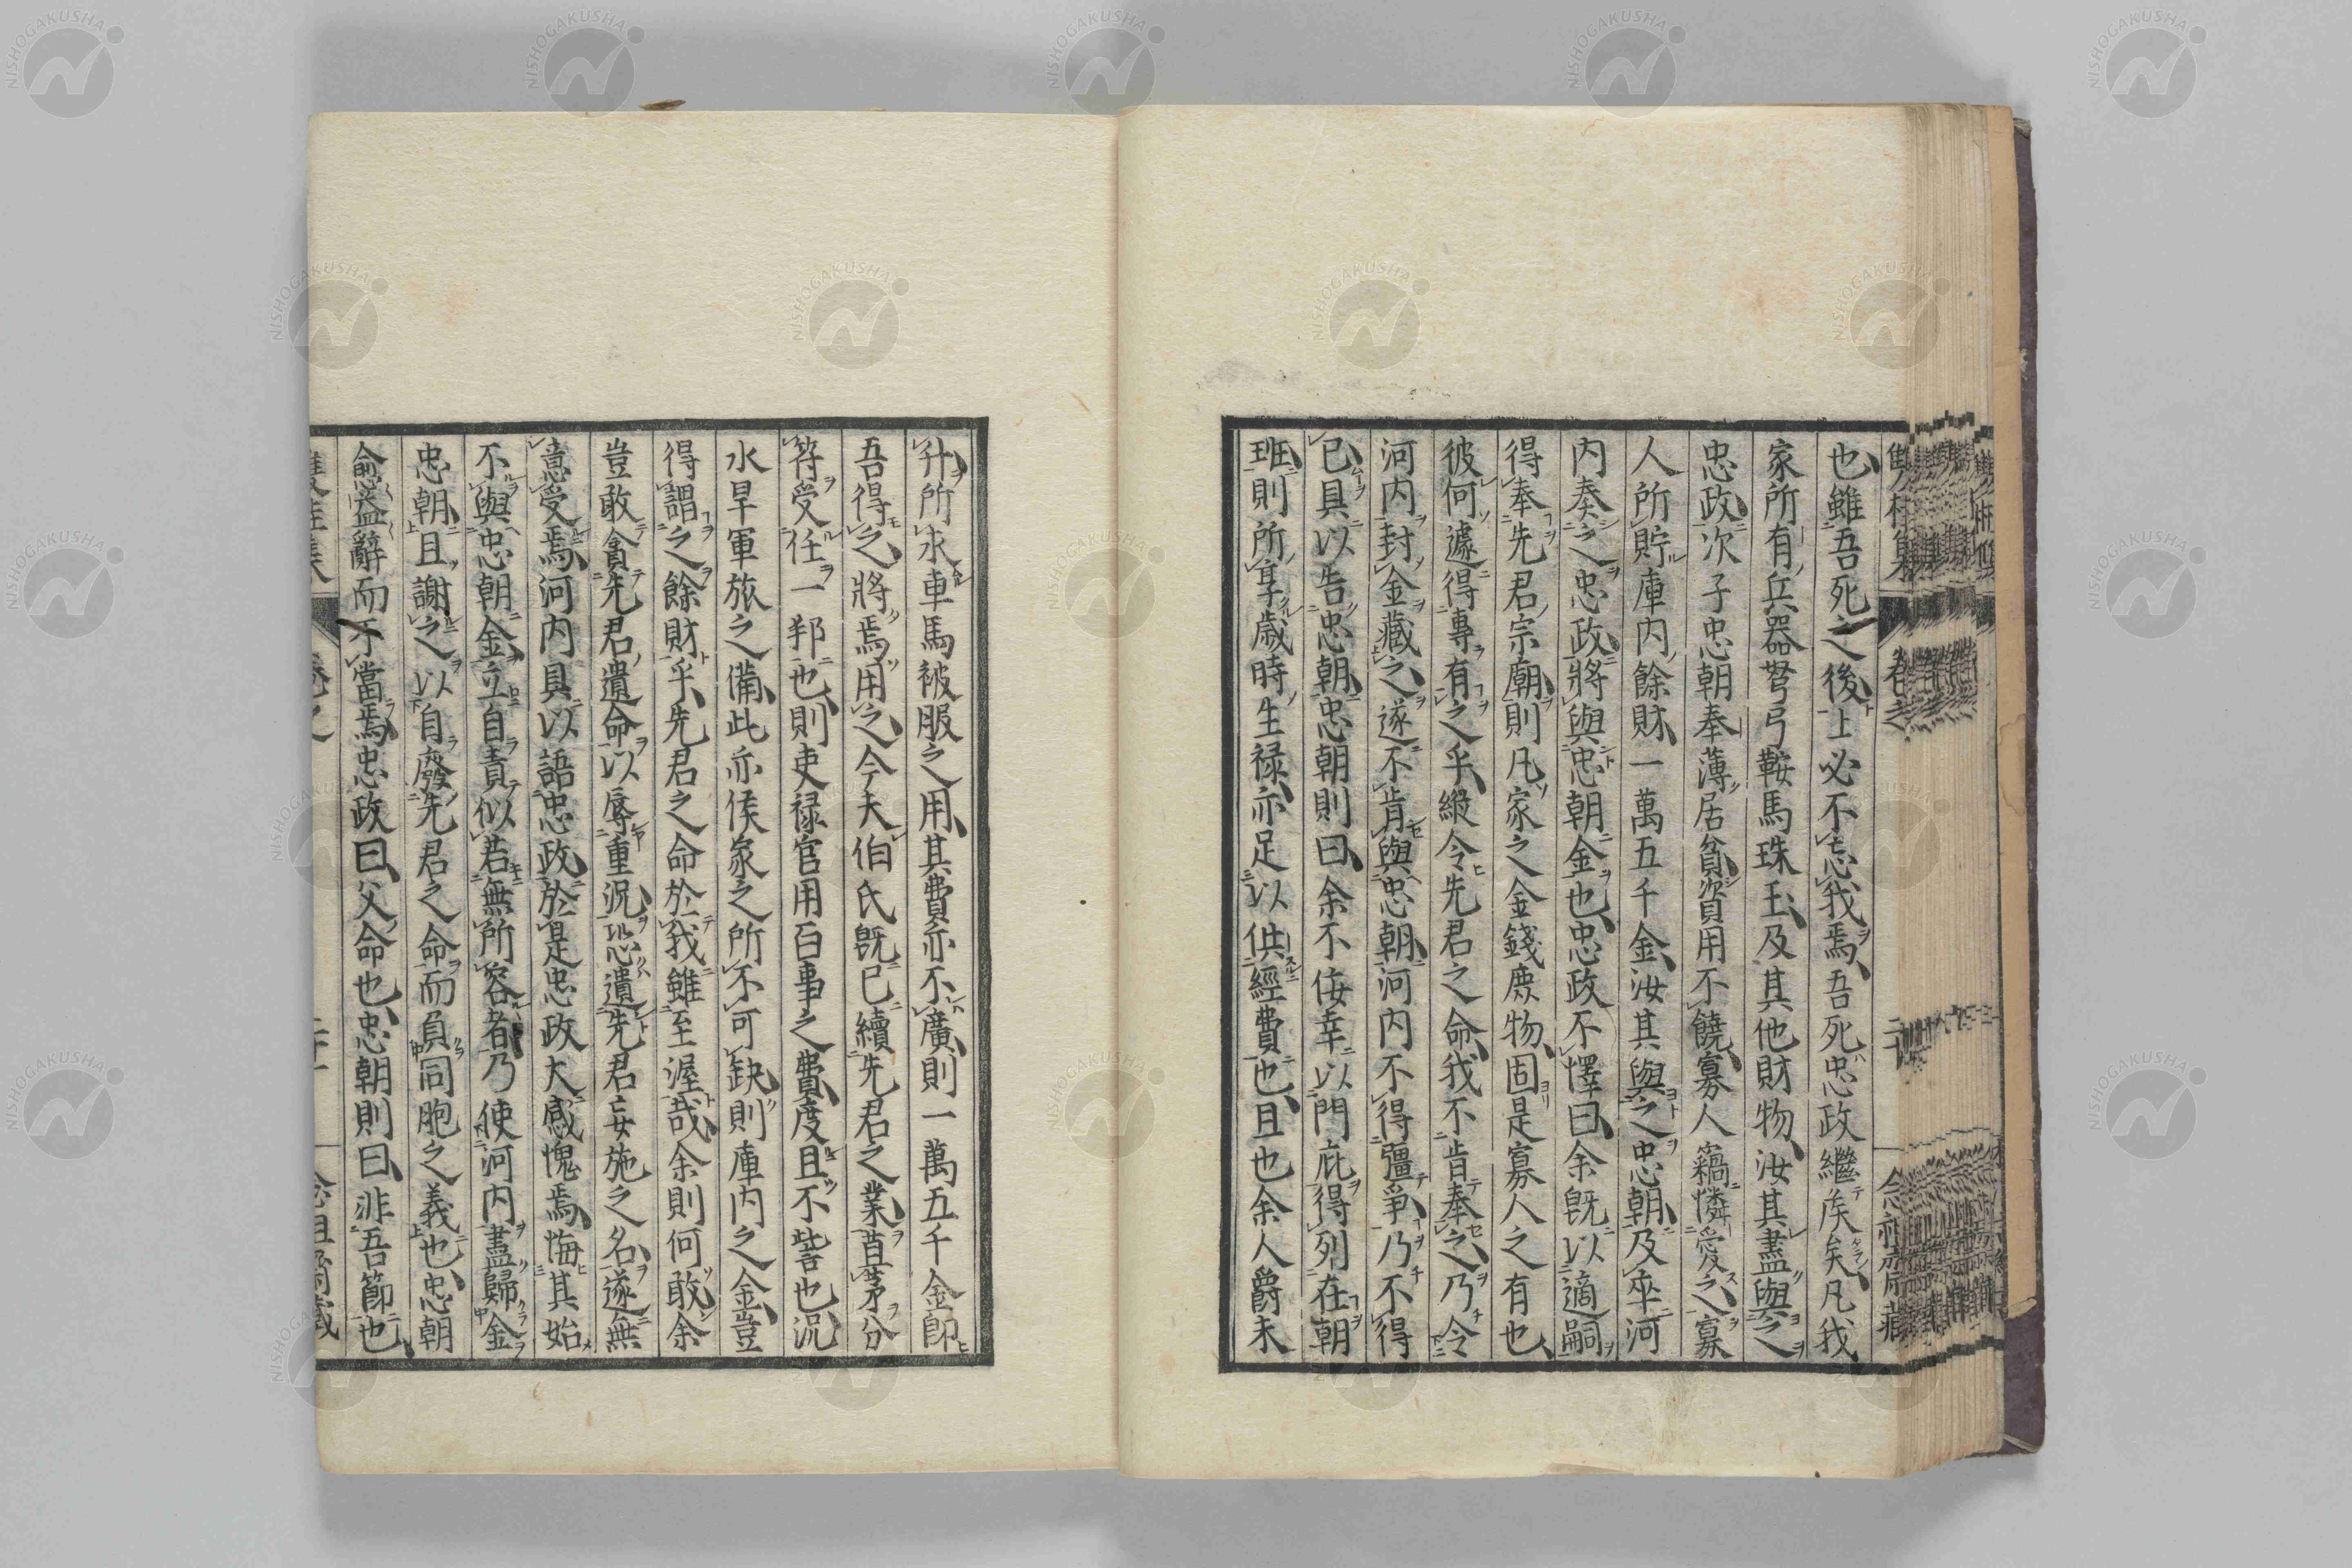 也雖吾死之後上必不忘我焉吾死忠政繼矦矣凡我
家所有兵器弩弓鞍馬珠玉及其他財物汝其盡與之
忠政次子忠朝奉薄居貧資用不饒寡人竊憐愛之寡
人所貯庫內餘財一萬五千金汝其與之忠朝及卒河
內奏之忠政將與忠朝金也忠政不懌曰余既以適嗣
得奉先君宗廟則凡家之金錢庶物固是寡人之有也
彼何遽得專有之乎縱令先君之命我不肯奉之乃令
河內封金藏之遂不肯與忠朝河內不得彊爭乃不得
已具以告忠朝忠朝則曰余不佞幸以門庇得列在朝
班則所享歲時生祿亦足以供經費也且也余人爵未
升所求車馬被服之用其費亦不廣則一萬五千金即
吾得之將焉用之今夫伯氏既已續先君之業苴茅分
符受任一邦也則吏祿官用百事之費度且不訾也況
水旱軍旅之備此亦侯家之所不可缺則庫內之金豈
得謂之餘財乎先君之命於我雖至渥哉余則何敢余
豈敢貪先君遺命以辱重況恐遺先君妄施之名遂無
意受焉河內具以語忠政於是忠政大感愧焉悔其始
不與忠朝金立自責似若無所容者乃使河內盡歸金
忠朝且謝之以自廢先君之命而負同胞之義也忠朝
愈益辭而不當焉忠政曰父命也忠朝則曰非吾節也
NISHOGAKUSHA